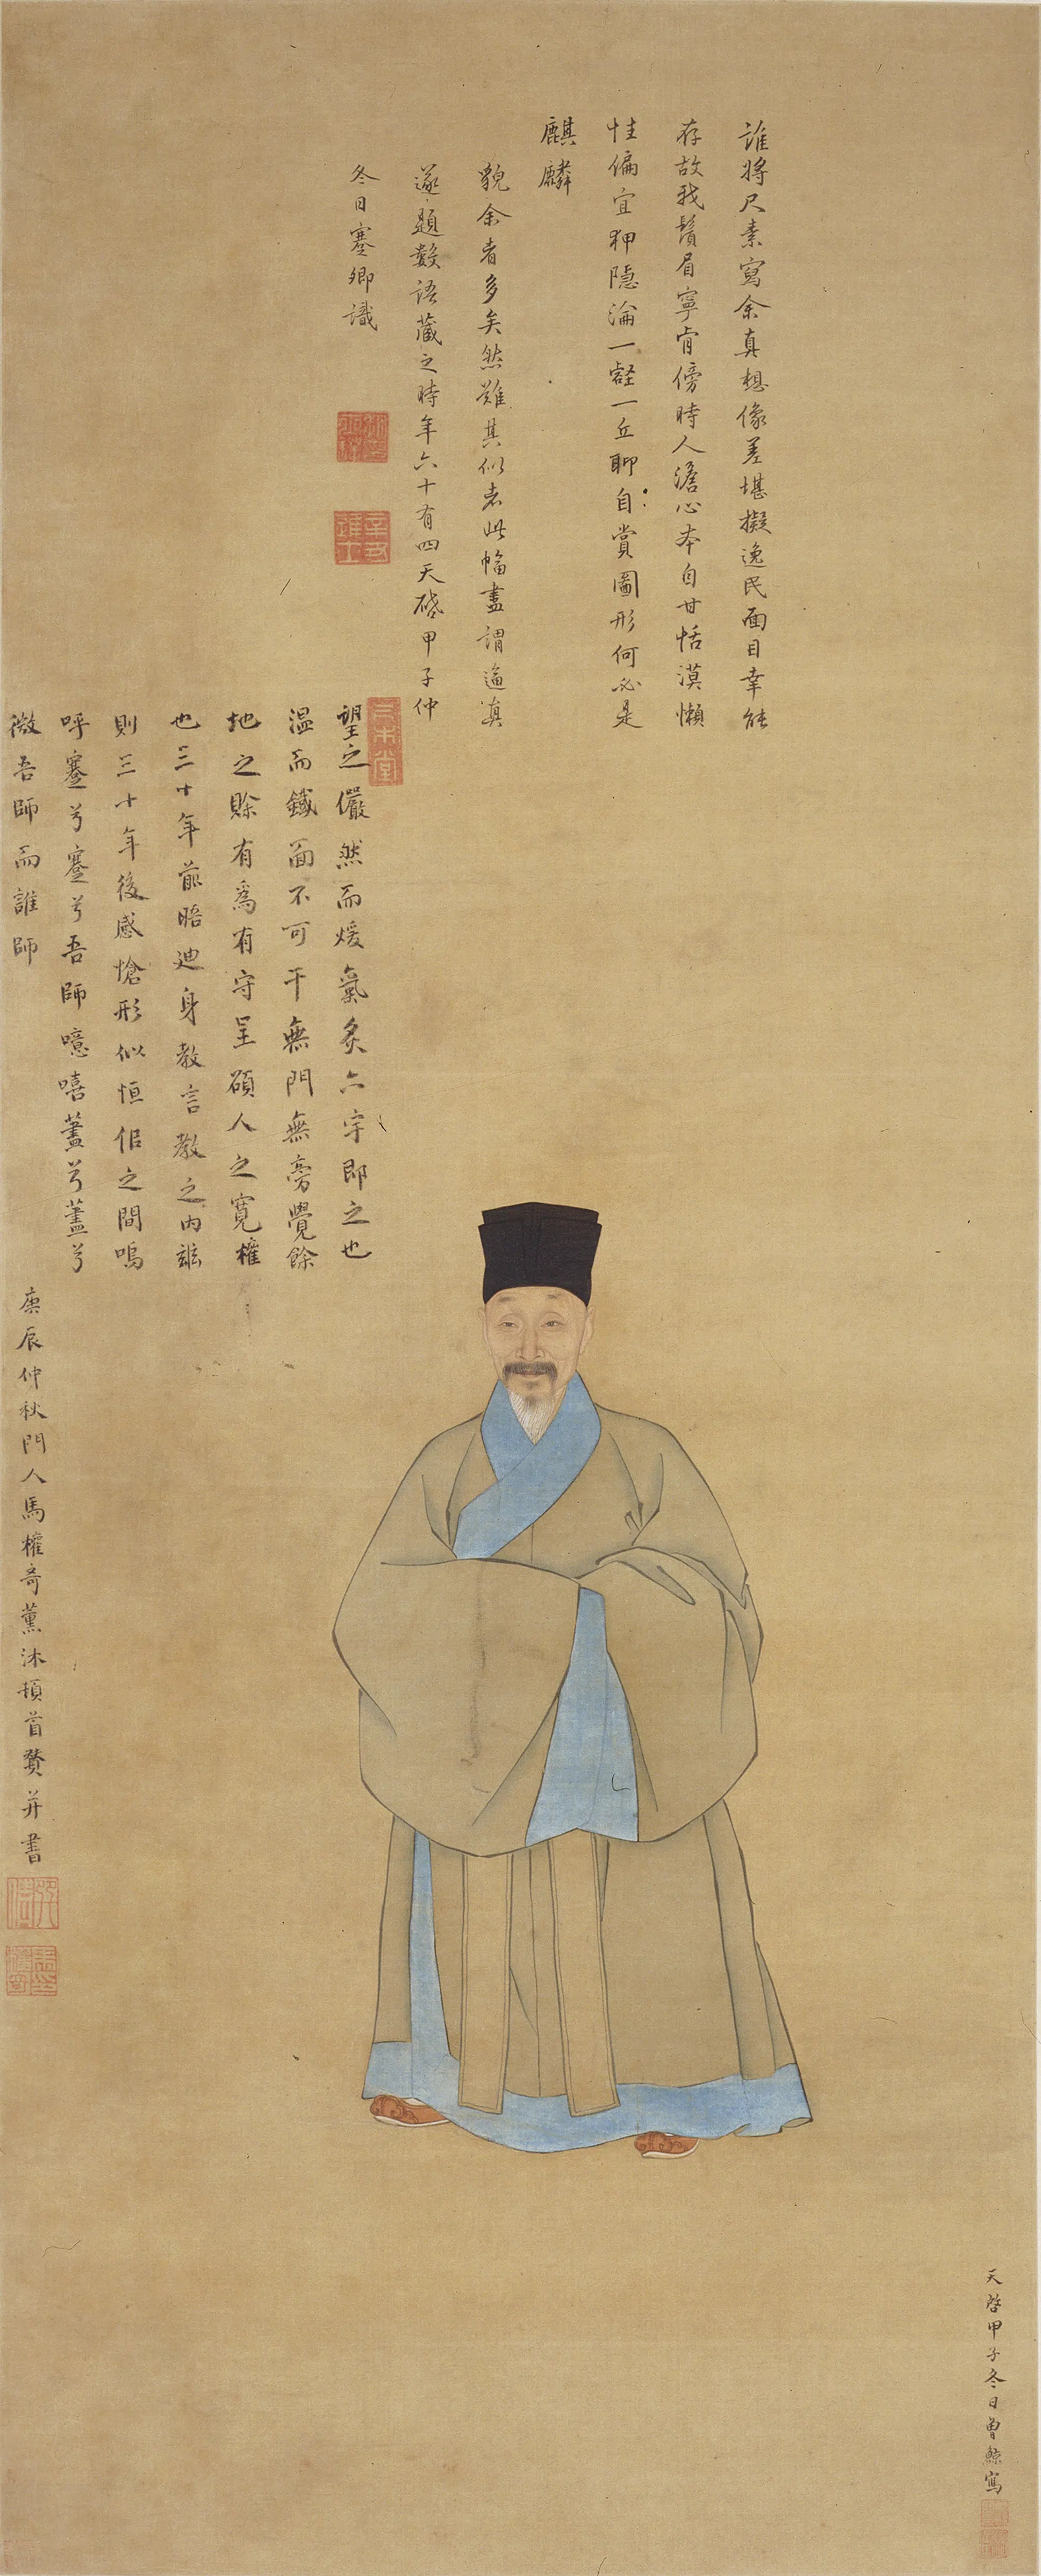 誰將尺素寫余真想像差堪擬逸民面目幸能
存故我鬚眉寧肯傍時人澹心本自甘恬漠懶
性偏宜狎隱淪一壑一丘聊自賞圖形何必是
麒麟
貌余者多矣然難其似者此幅盡謂逼真
遂題數語藏之時年六十有四天啓甲子仲
冬日蹇卿識
辛丑進士
望之儼然而煖氣炙六宇即之也
溫而鐵面不可干無門無旁覺餘
地之賒有為有守呈碩人之寬權
也三十年前晤迪身教言教之內茲
則三十年後感愴形似恒佀之間嗚
呼蹇兮蹇兮吾師噫嘻藎兮藎兮
微吾師而誰師
庚辰仲秋門人馬權奇薰沐頓首贊并書
天啓甲子冬日曾鯨寫